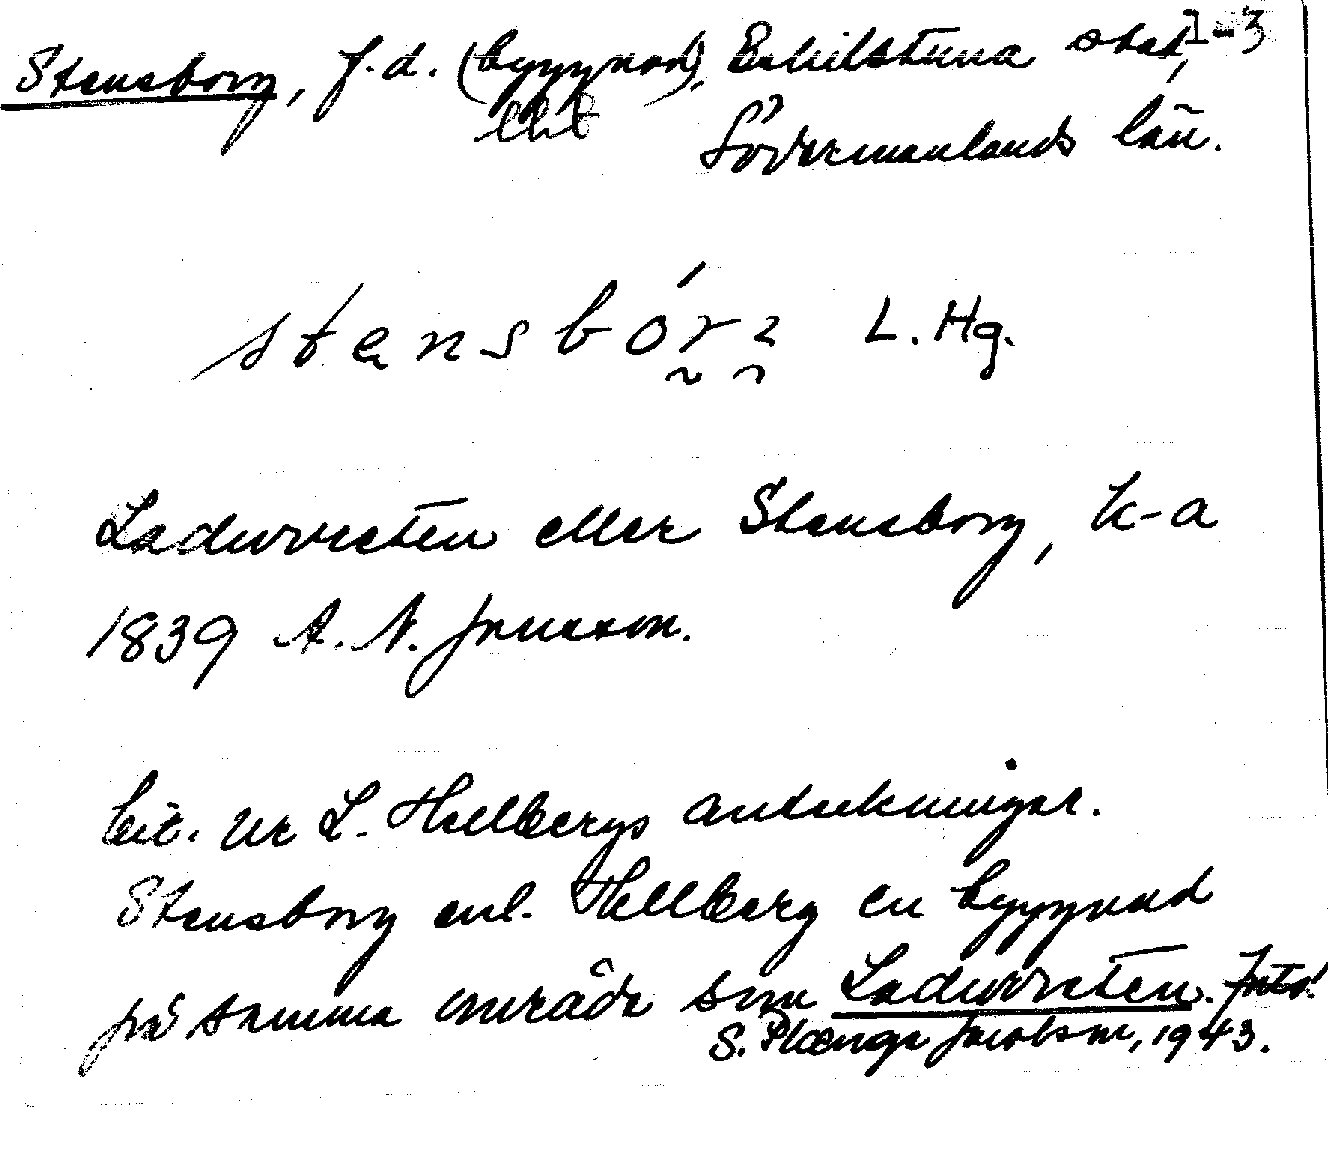 Stensborg, f.d. (byggnad), Eskilstuna stad, 1-3
Södermanlands län.
stensbórʒ L. Hg.
Ladurveten eller Stensborg, k-a
1839 A. N. Jonsson.
Cit. ur L. Hellbergs anteckningar.
Stensborg enl. Hellberg en byggnad
på samma område som Ladurveten.
S. Plænge Jacobson, 1943.